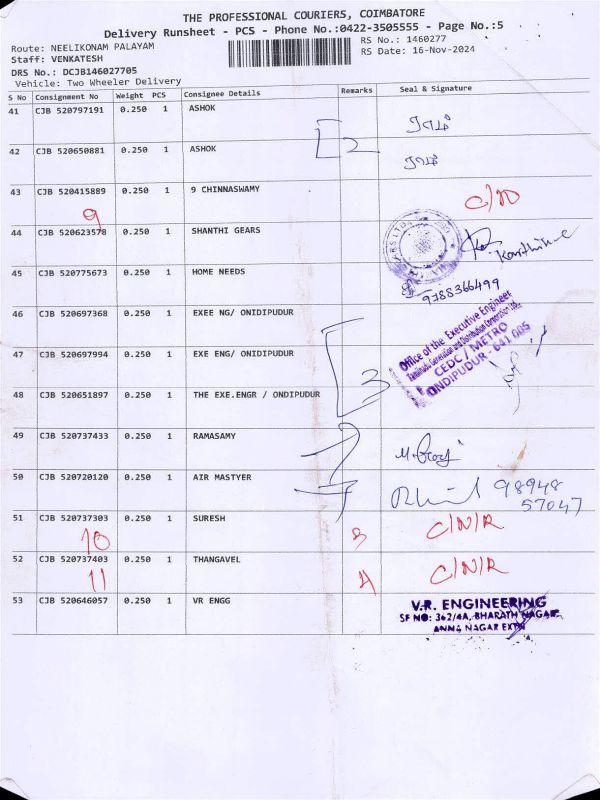 THE PROFESSIONAL COURIERS, COIMBATORE
Delivery Runsheet - PCS - Phone No.:0422-3505555 - Page No.:5
Route: NEELIKONAM PALAYAM
RS No.: 1460277
Staff: VENKATESH
RS Date: 16-Nov-2024
DRS No.: DCJB146027705
Vehicle: Two Wheeler Delivery
S No Consignment No Weight PCS Consignee Details Remarks Seal & Signature
41 CJB 520797191 0.250 1 ASHOK
2
42 CJB 520650881 0.250 1 ASHOK
43 CJB 520415889 0.250 1 9 CHINNASWAMY C/N/D
9
44 CJB 520623578 0.250 1 SHANTHI GEARS
Karthik
45 CJB 520775673 0.250 1 HOME NEEDS
9788366499
46 CJB 520697368 0.250 1 EXEE NG/ ONIDIPUDUR
Office of the Executive Engineer
47 CJB 520697994 0.250 1 EXE ENG/ ONIDIPUDUR
3
CEDC / METRO
ONDIPUDUR - 641 005
48 CJB 520651897 0.250 1 THE EXE.ENGR / ONDIPUDUR
49 CJB 520737433 0.250 1 RAMASAMY
50 CJB 520720120 0.250 1 AIR MASTYER
98948
57047
51 CJB 520737303 0.250 1 SURESH C/N/R
10
52 CJB 520737403 0.250 1 THANGAVEL C/N/R
11
53 CJB 520646057 0.250 1 VR ENGG
V.R. ENGINEERING
SF NO: 362/4A, BHARATH NAGAR
ANNA NAGAR EXTN